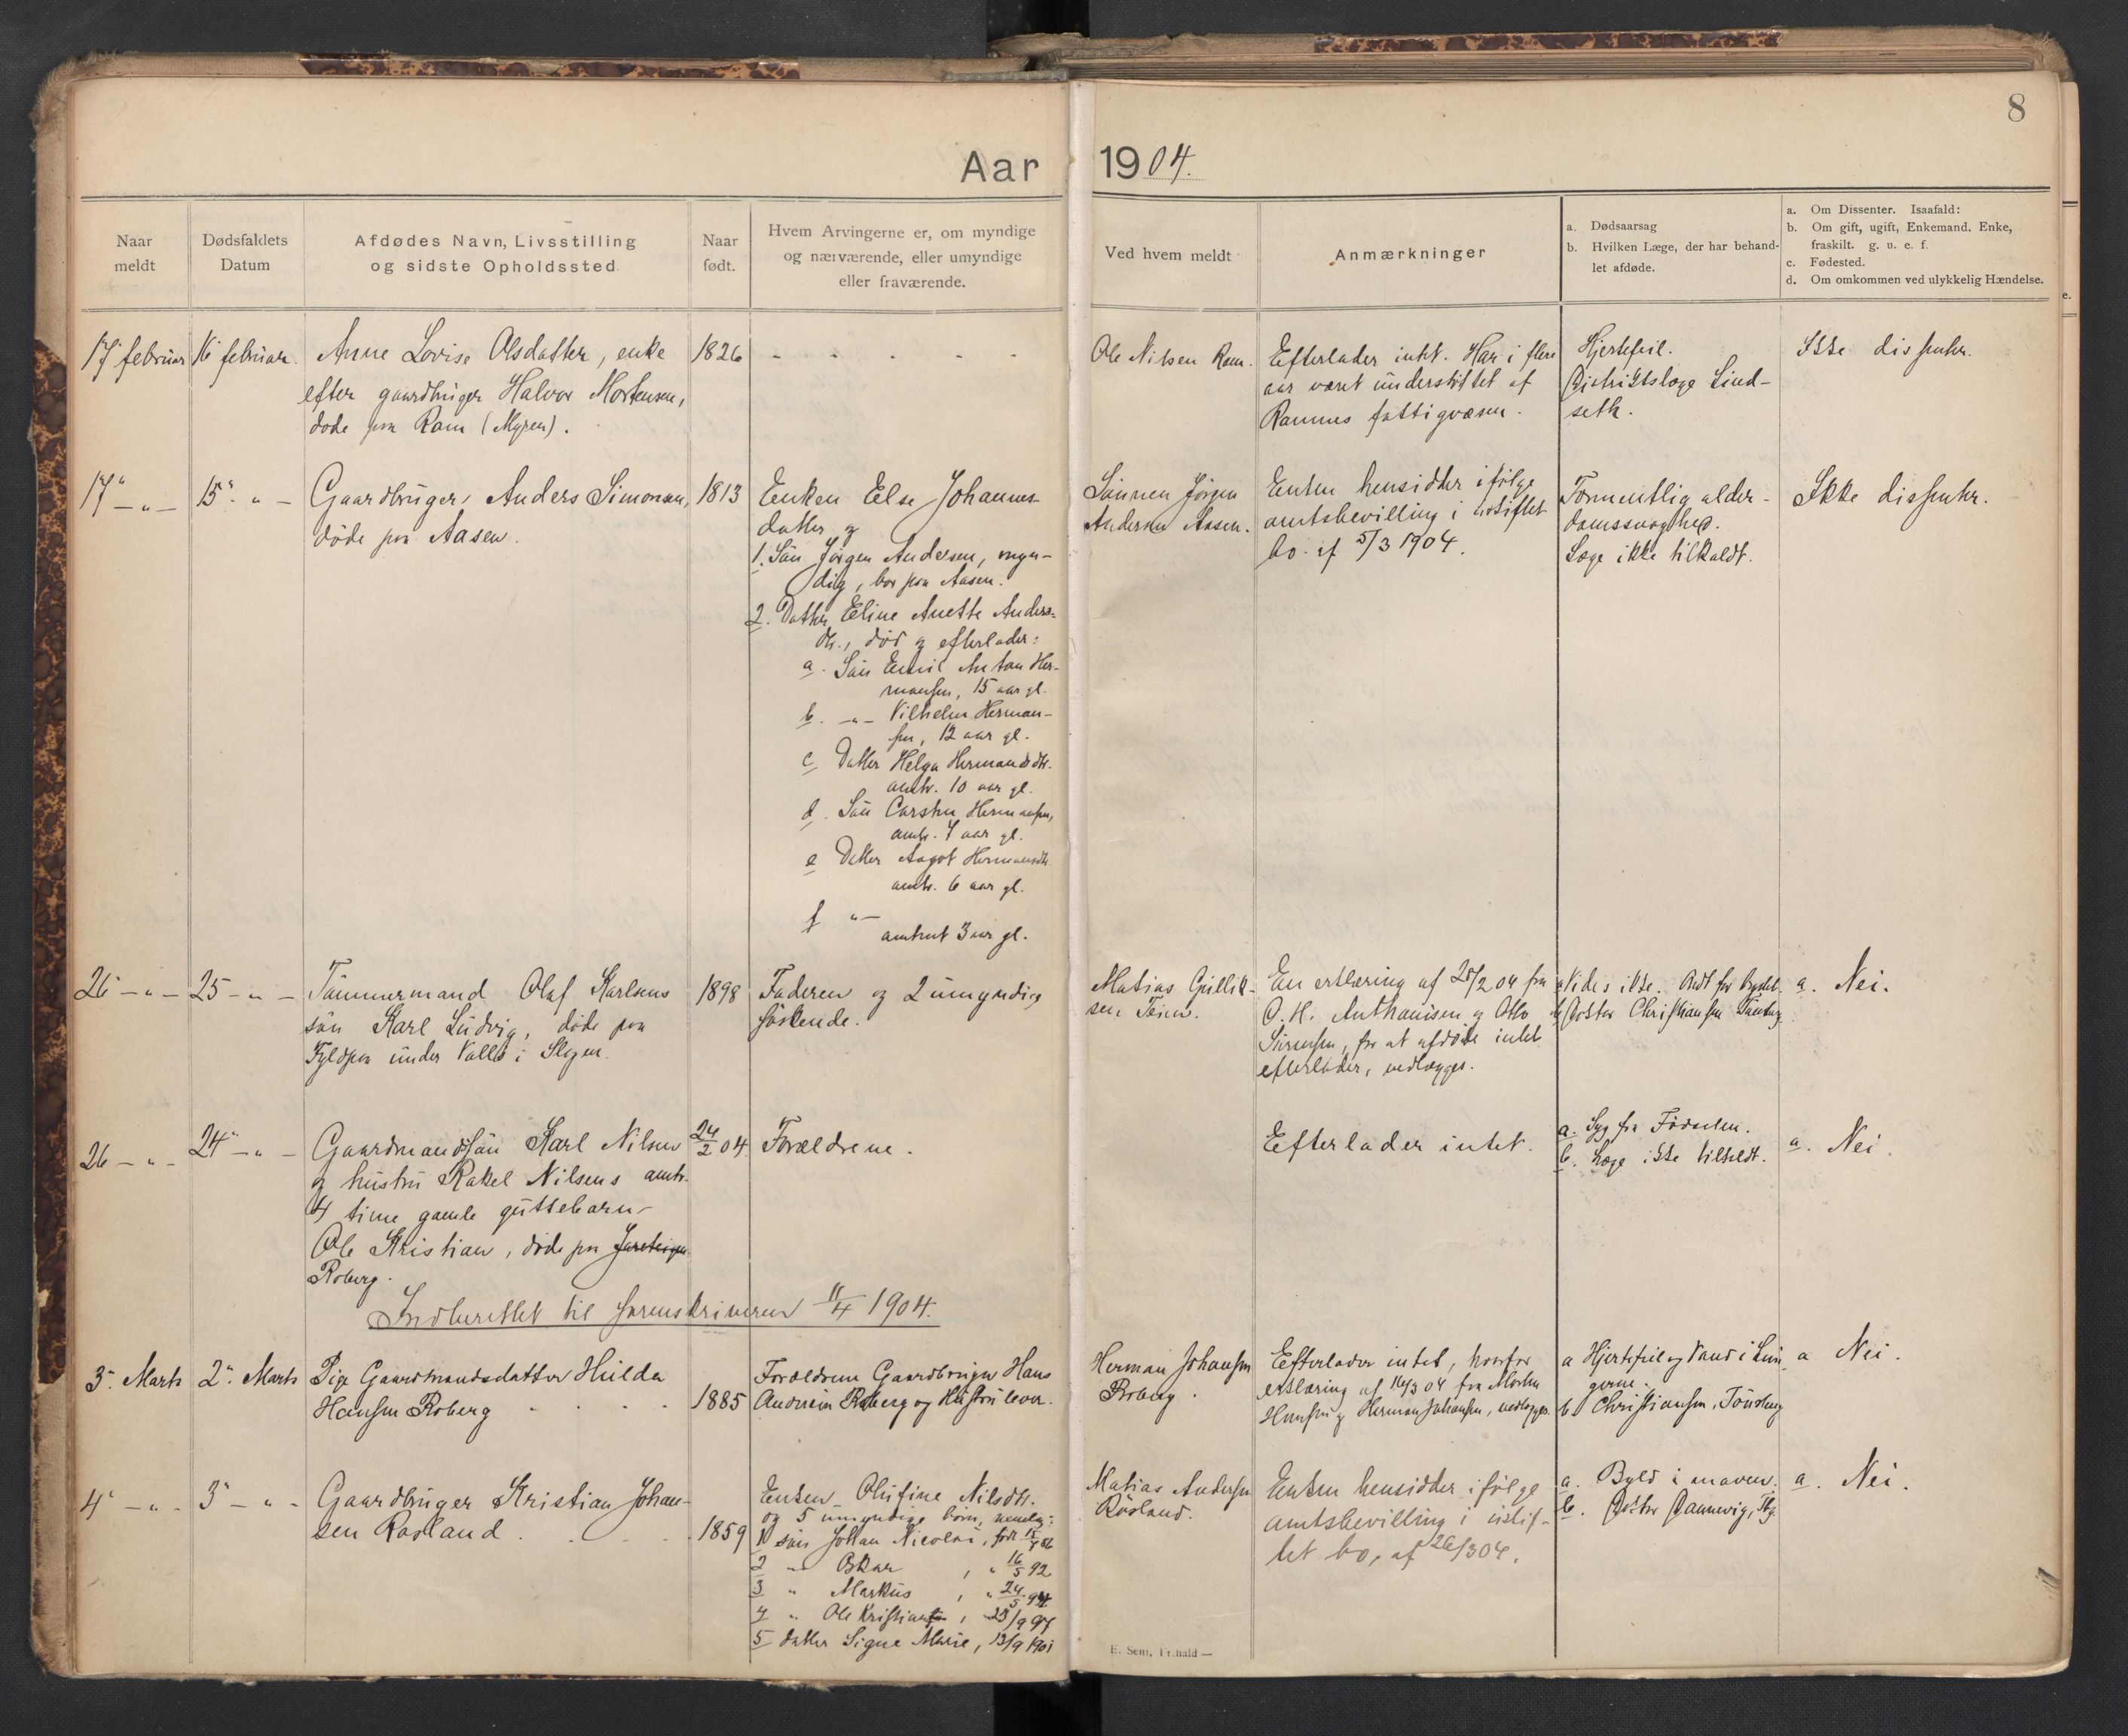 8
Aar 1904.
Naar meldt
Dødsfaldets Datum
Afdødes Navn, Livsstilling og sidste Opholdssted
Naar født.
Hvem Arvingerne er, om myndige og nærværende, eller umyndige eller fraværende.
Ved hvem meldt
Anmærkninger
a. Dødsaarsag
b. Hvilken Læge, der har behandlet afdøde.
a. Om Dissenter. Isaafald:
b. Om gift, ugift, Enkemand, Enke, fraskilt. g. u. e. f.
c. Fødested.
d. Om omkommen ved ulykkelig Hændelse.
17' februar
16' februar
Anne Lovise Olsdatter, enke
efter gaardbruger Halvor Mortensen,
døde paa Ram (Myren).
1826
Ole Nilsen Ram.
Efterlader intet. Har i flere
aar været understøttet af
Ramnes fattigvæsen.
Hjertefeil.
Distriktslæge Lind-
seth.
Ikke dissenter.
17" - " -
15" - " -
Gaardbruger Anders Simonsen,
døde paa Aasen.
1813
Enken Else Johannes-
datter og
1. Søn Jørgen Andersen, myn-
dig, bor paa Aasen.
2. Datter Eline Anette Anders-
dtr., død og efterlader:
a. Søn Emil Anton Her-
mansen, 15 aar gl.
b. -"- Vilhelm Herman-
sen, 12 aar gl.
c Datter Helga Hermansdtr.
amtr. 10 aar gl.
d. Søn Carsten Hermansen,
amtr. 7 aar gl.
e Datter Aagot Hermansdtr.
amtr. 6 aar gl.
f "-
amtrent 3 aar gl.
Sønnen Jørgen
Andersen Aasen.
Enken hensidder ifølge
amtsbevilling i uskiftet
bo af 5/3 1904.
Formentlig alder-
domssvaghed.
Læge ikke tilkaldt.
Ikke dissenter.
26 - " -
25 - " -
Tømmermand Olaf Karlsens
søn Karl Ludvig, døde paa
Fyldpaa under Vallø i Slagen.
1898
Faderen og 2 umyndige
søskende.
Matias Gullik-
sen
En erklæring af 25/2 04 fra
O. H. Anthonisen og Otto
Sørensen, for at afdøde intet
efterlader, vedlægges.
a Vides ikke.
b Doktor Christiansen Tønsberg
a. Nei.
26 - " -
24" - " -
Gaardmandssøn Karl Nilsen
og hustru Rakel Nilsens amtr.
4 time gamle guttebarn
Ole Kristian, døde paa
Roberg.
24/2 04
Forældrene.
Efterlader intet.
a. Syg fra Fødselen.
b. Læge ikke tilkaldt.
a. Nei.
Indberettet til sorenskriveren 11/4 1904.
3" Marts
2" Marts
Pige Gaardmandsdatter Hilda
Hansen Roberg
1885
Forældrene Gaardbruger Hans
Andersen Roberg og Hustru lever.
Herman Johansen
Roberg.
Efterlader intet, hvorfor
erklæring af 16/3 04 fra Morten
Hansen og Herman Johansen, vedlægges.
a Hjertefeil og Vand i Lun-
gerne.
b Christiansen, Tønsberg
a Nei.
4" - " -
3" - " -
Gaardbruger Kristian Johan-
sen Rosland.
1859
Enken Olufine Nilsdtr.
og 5 umyndige børn, nemlig:
1 søn Johan Nicolai, født
2 -"- Oskar, " 16/5 92
3 " Markus, " 24/5 94
4 " Ole Kristian, 23/9 97
5 datter Signe Marie, 13/9 1901
Matias Andersen
Rosland.
Enken hensidder ifølge
amtsbevilling i uskif-
tet bo, af 26/3 04.
a. Byld i maven.
b. Doktor Dannevig, Tbg.
a. Nei.
E. Sem, Fr.hald —